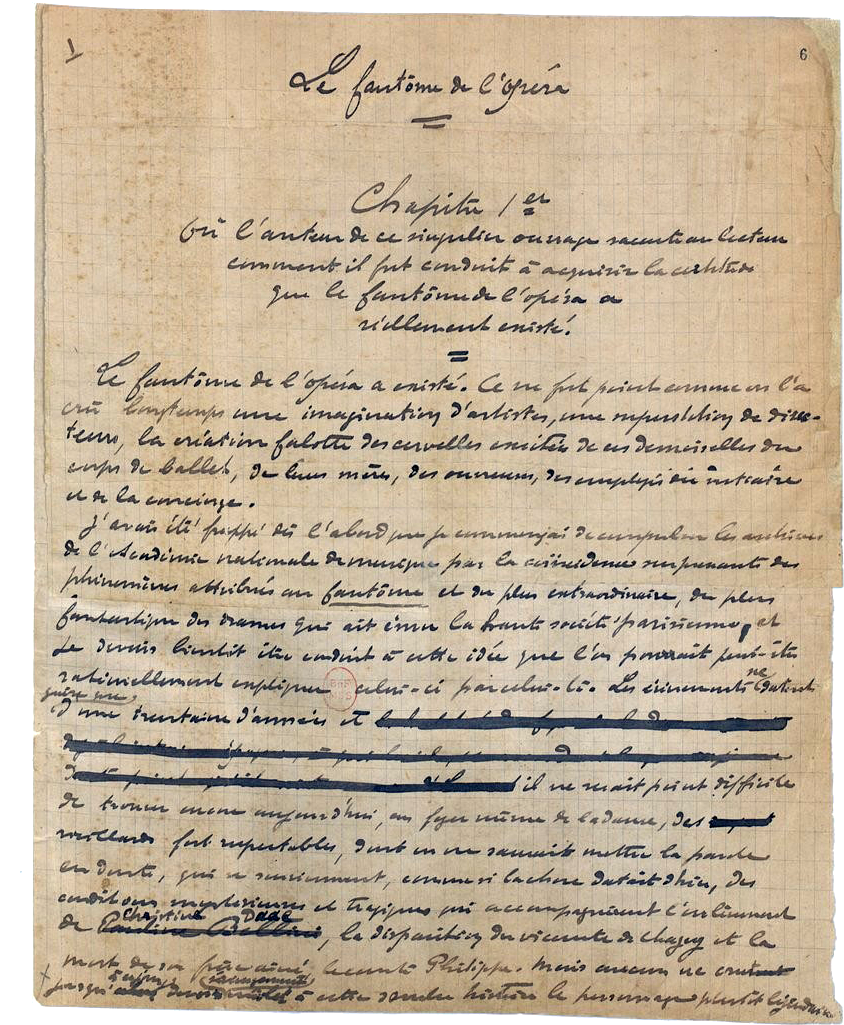 1
6
Le fantôme de l'opéra
Chapitre 1er
Où l'auteur de ce singulier ouvrage raconte au lecteur
comment il fut conduit à acquérir la certitude
que le fantôme de l'opéra a
réellement existé.
Le fantôme de l'opéra a existé. Ce ne fut point comme on l'a
crû longtemps une imagination d'artistes, une superstition de direc-
teurs, la création falotte des cervelles excitées de ces demoiselles du
corps de ballet, de leurs mères, des ouvreuses, des employés du vestiaire
et de la concierge.
J'avais été frappé dès l'abord que je commençai de compulser les archives
de l'Académie nationale de musique par la coïncidence surprenante des
phénomènes attribués au fantôme et du plus extraordinaire, du plus
fantastique des drames qui ait ému la haute société parisienne, et
Je devais bientôt être conduit à cette idée que l'on pourrait peut-être
rationnellement expliquer celui-ci par celui-là. Les évènements ne datent
guère que
d'une trentaine d'années et
il ne serait point difficile
de trouver encore aujourd'hui, au foyer même de la danse, des
vieillards fort respectables, dont on ne saurait mettre la parole
en doute, qui se souviennent, comme si la chose datait d'hier, des
conditions mystérieuses et tragiques qui accompagnèrent l'enlèvement
Christine Daaé
de Pauline Bellini, la disparition du vicomte de Chagny et la
mort de son frère aîné, le comte Philippe. Mais aucun ne
jusqu'à ce jour
à cette sombre histoire le personnage plutôt légendaire